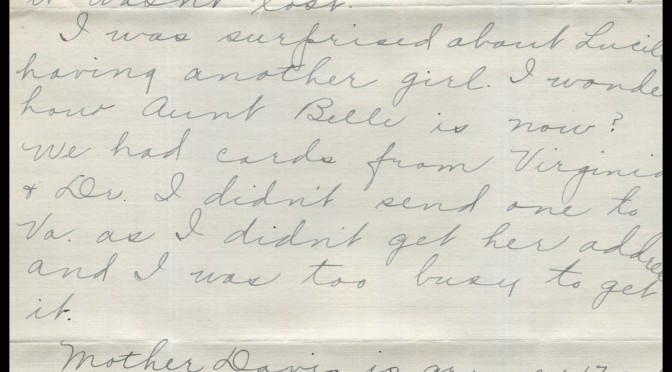 it wasn't lost.
I was surprised about Lucil
having another girl. I wonde
how Aunt Belle is now?
We had cards from Virginia
& Dr. I didn't send one to
Va. as I didn't get her addre
and I was too busy to get
it.
Mother Davis is